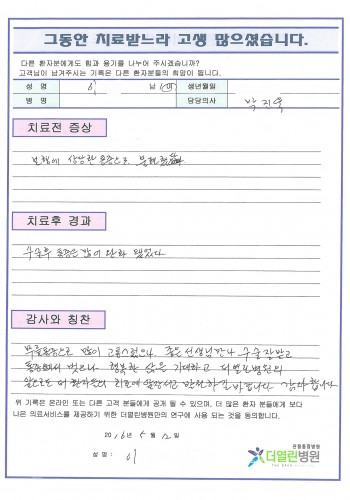 그동안 치료받느라 고생 많으셨습니다.
다른 환자분에게도 힘과 용기를 나누어 주시겠습니까?
고객님이 남겨주시는 기록은 다른 환자분들의 희망이 됩니다.
성 명 이 남 여 생년월일
병 명 담당의사 박진욱
치료전 증상
보행에 상당한 통증으로 불편했음
치료후 경과
수술후 통증은 많이 완화 됐었다
감사와 칭찬
무릎통증으로 많이 고통스러웠으나 좋은 선생님 만나 수술 잘받고
통증에서 벗어나 행복한 삶은 기대하고 더열린병원의
앞으로도 더 환자분의 치료에 앞장서고 번창하길 바랍니다 감사합니다
위 기록은 온라인 또는 다른 고객 분들에게 공개 될 수 있으며, 더 많은 환자 분들에게 보다
나은 의료서비스를 제공하기 위한 더열린병원만의 연구에 사용 되는 것을 동의합니다.
2016년 5월 12일
성 명 : 이
관절통증병원
더열린병원